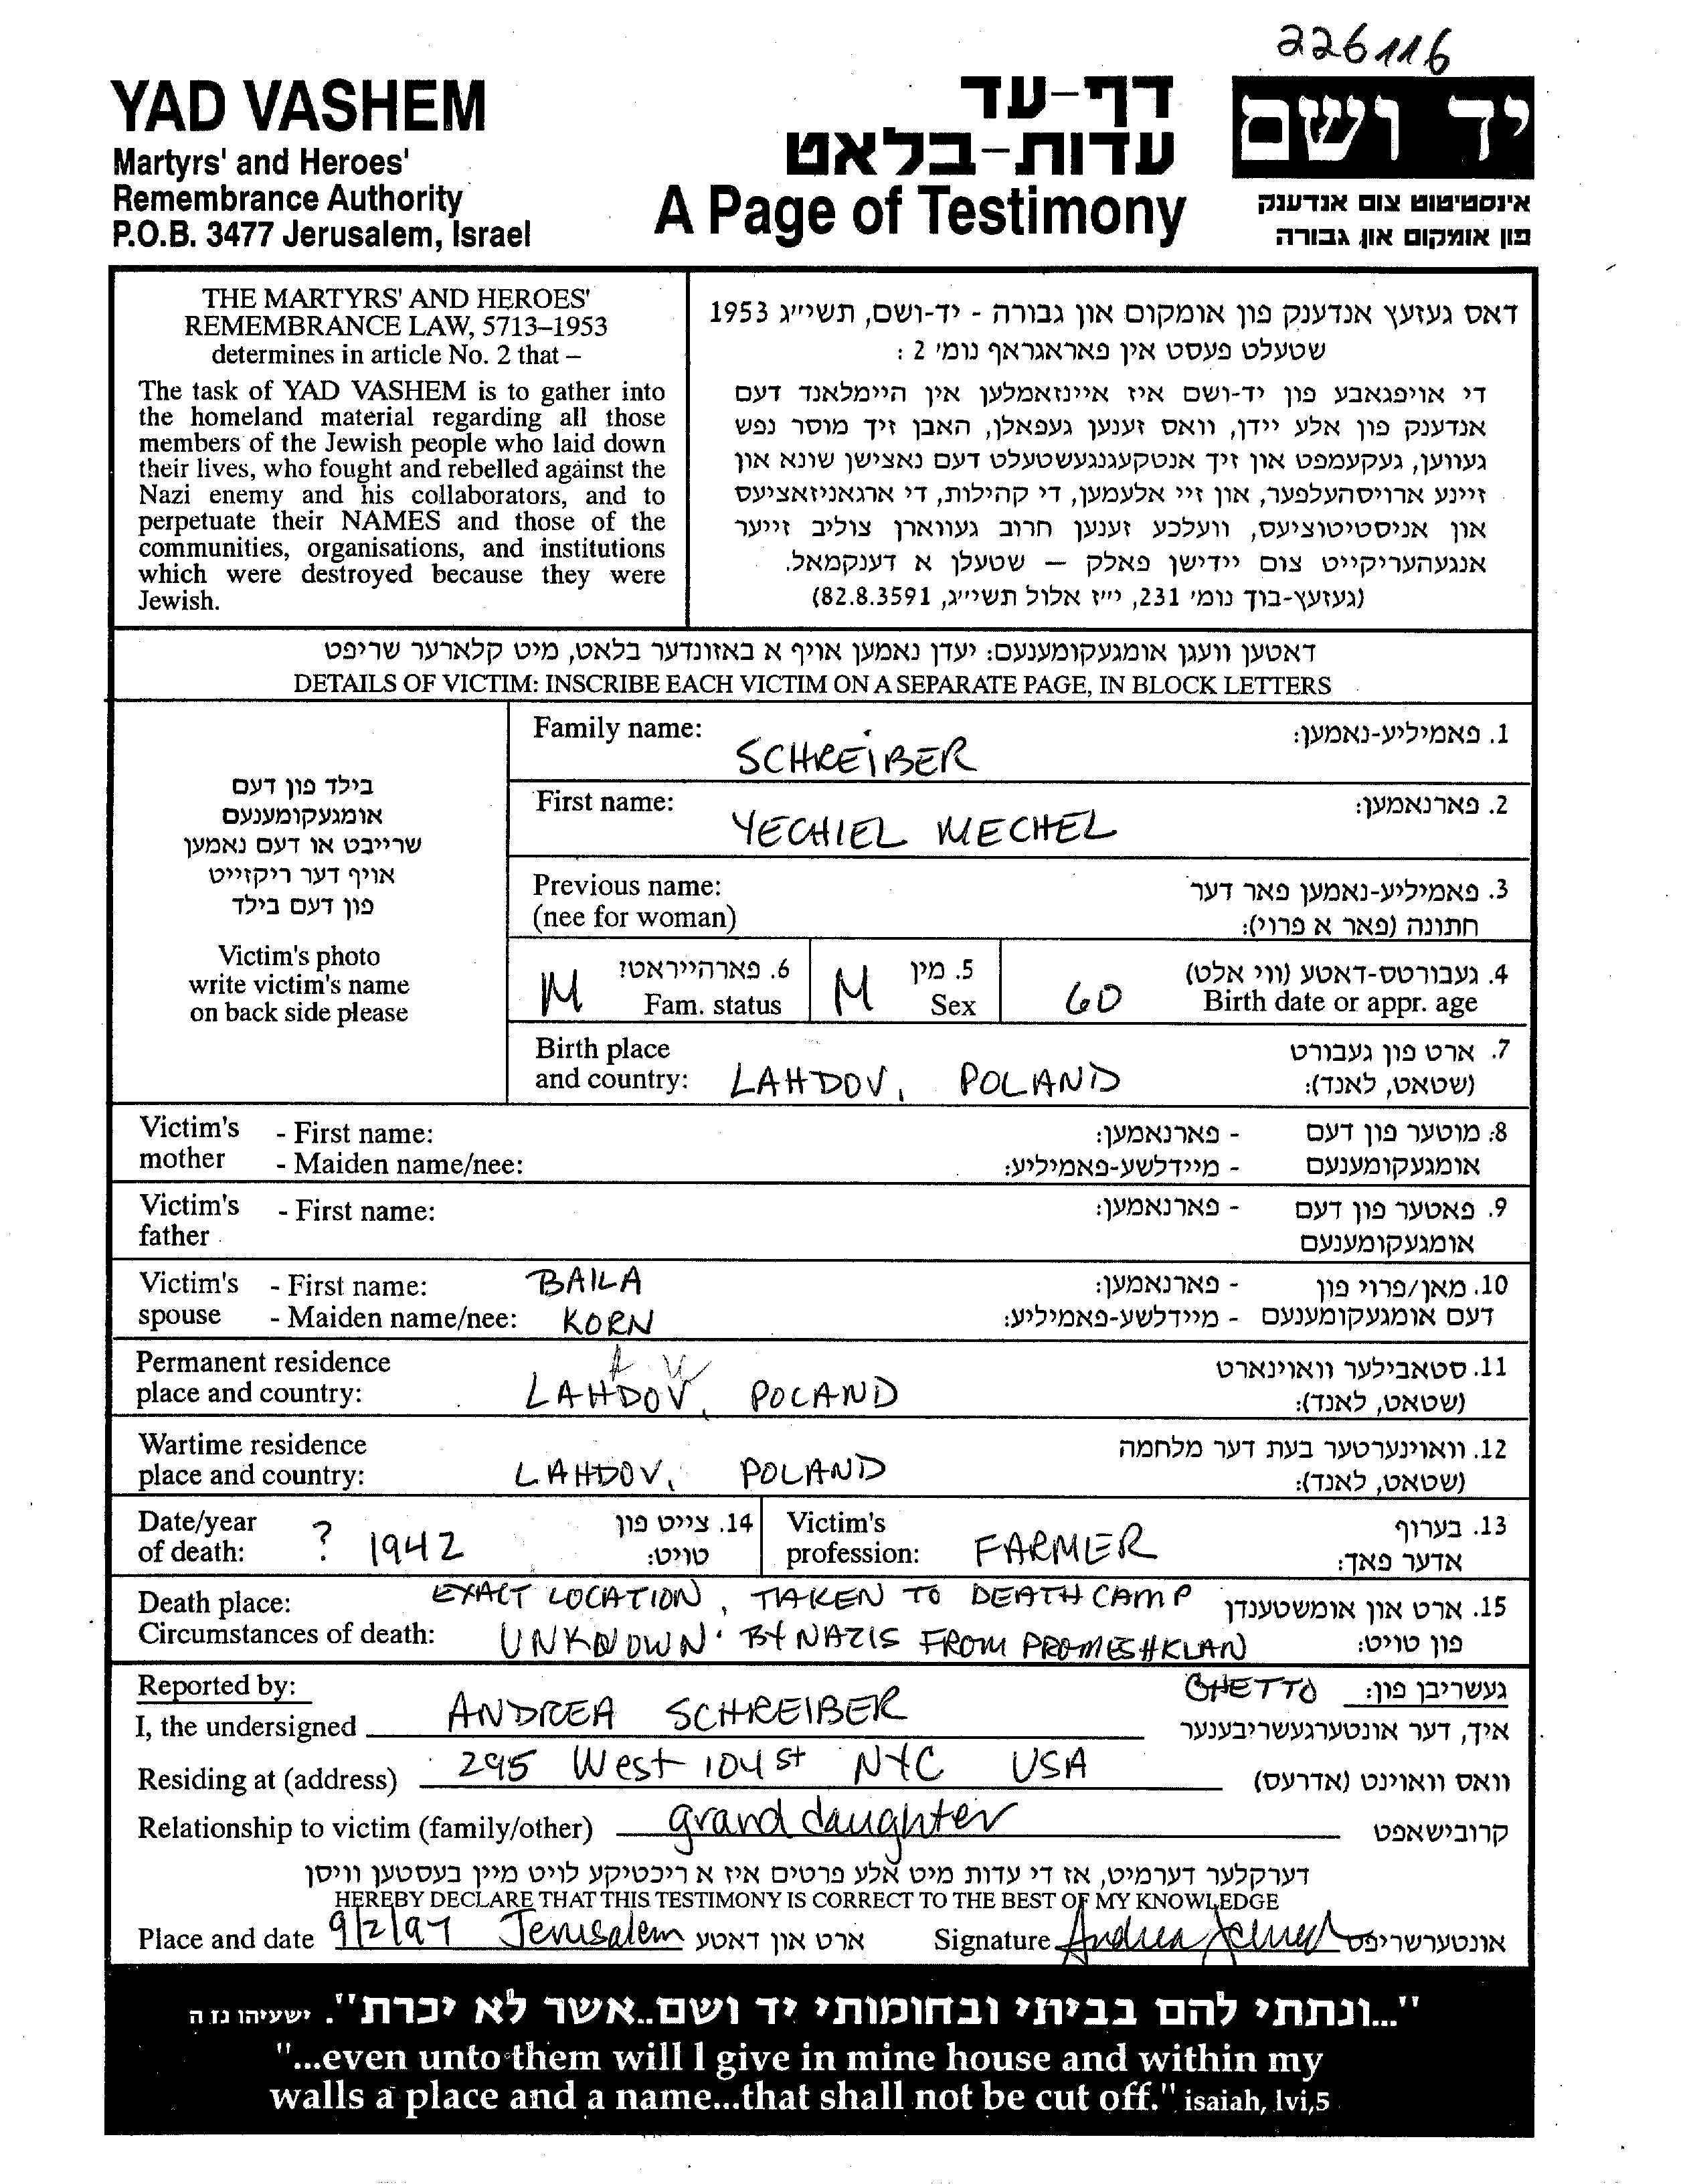 226116
YAD VASHEM
Martyrs' and Heroes'
Remembrance Authority
P.O.B. 3477 Jerusalem, Israel
דף-עד
עדות-בלאט
A Page of Testimony
יד ושם
אינסטיטוט צום אנדענק
פון אומקום און גבורה
THE MARTYRS' AND HEROES'
REMEMBRANCE LAW, 5713–1953
determines in article No. 2 that –
The task of YAD VASHEM is to gather into
the homeland material regarding all those
members of the Jewish people who laid down
their lives, who fought and rebelled against the
Nazi enemy and his collaborators, and to
perpetuate their NAMES and those of the
communities, organisations, and institutions
which were destroyed because they were
Jewish.
דאס געזעץ אנדענק פון אומקום און גבורה - יד-ושם, תשי״ג 1953
שטעלט פעסט אין פאראגראף נומ׳ 2 :
די אויפגאבע פון יד-ושם איז איינזאמלען אין היימלאנד דעם
אנדענק פון אלע יידן, וואס זענען געפאלן, האבן זיך מוסר נפש
געווען, געקעמפט און זיך אנטקעגנגעשטעלט דעם נאצישן שונא און
זיינע ארויסהעלפער, און זיי אלעמען, די קהילות, די ארגאניזאציעס
און אניסטיטוציעס, וועלכע זענען חרוב געווארן צוליב זייער
אנגעהעריקייט צום יידישן פאלק – שטעלן א דענקמאל.
(געזעץ-בוך נומ׳ 231, י״ז אלול תשי״ג, 82.8.3591)
דאטען וועגן אומגעקומענעם: יעדן נאמען אויף א באזונדער בלאט, מיט קלארער שריפט
DETAILS OF VICTIM: INSCRIBE EACH VICTIM ON A SEPARATE PAGE, IN BLOCK LETTERS
בילד פון דעם
אומגעקומענעם
שרייבט או דעם נאמען
אויף דער ריקזייט
פון דעם בילד
Victim's photo
write victim's name
on back side please
Family name: SCHREIBER 1. פאמיליע-נאמען:
First name: YECHIEL MECHEL 2. פארנאמען:
Previous name: 3. פאמיליע-נאמען פאר דער
(nee for woman) חתונה (פאר א פרוי):
M 6. פארהייראט? M 5. מין 60 4. געבורטס-דאטע (ווי אלט)
Fam. status Sex Birth date or appr. age
Birth place 7. ארט פון געבורט
and country: LAHDOV, POLAND (שטאט, לאנד):
Victim's - First name: - פארנאמען: 8. מוטער פון דעם
mother - Maiden name/nee: - מיידלשע-פאמיליע: אומגעקומענעם
Victim's - First name: - פארנאמען: 9. פאטער פון דעם
father אומגעקומענעם
Victim's - First name: BAILA - פארנאמען: 10. מאן/פרוי פון
spouse - Maiden name/nee: KORN - מיידלשע-פאמיליע: דעם אומגעקומענעם
Permanent residence 11. סטאבילער וואוינארט
place and country: LAHDOV, POLAND (שטאט, לאנד):
Wartime residence 12. וואוינערטער בעת דער מלחמה
place and country: LAHDOV, POLAND (שטאט, לאנד):
Date/year ? 1942 14. צייט פון Victim's FARMER 13. בערוף
of death: טויט: profession: אדער פאך:
Death place: EXACT LOCATION, TAKEN TO DEATH CAMP 15. ארט און אומשטענדן
Circumstances of death: UNKNOWN. BY NAZIS FROM PROMESHKLAN פון טויט:
Reported by: GHETTO געשריבן פון:
I, the undersigned ANDREA SCHREIBER איך, דער אונטערגעשריבענער
Residing at (address) 295 West 104 st NYC USA וואס וואוינט (אדרעס)
Relationship to victim (family/other) granddaughter קרובישאפט
דערקלער דערמיט, אז די עדות מיט אלע פרטים איז א ריכטיקע לויט מיין בעסטען וויסן
HEREBY DECLARE THAT THIS TESTIMONY IS CORRECT TO THE BEST OF MY KNOWLEDGE
Place and date 9/2/97 Jerusalem ארט און דאטע Signature Andrea אונטערשריפט
"...ונתתי להם בביתי ובחומותי יד ושם..אשר לא יכרת". ישעיהו נז ה
"...even unto them will I give in mine house and within my
walls a place and a name...that shall not be cut off." isaiah, lvi,5